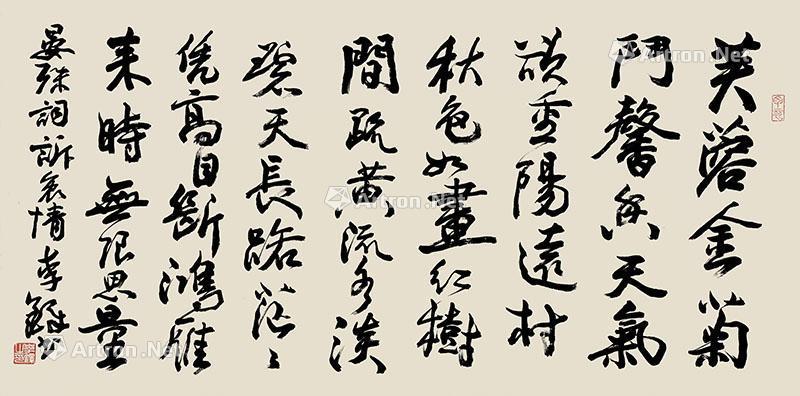 芙蓉金菊
鬥馨香天氣
欲重陽遠村
秋色如畫紅樹
間疏黃流水淡
碧天長路茫々
凭高目斷鴻雁
来時無限思量
晏殊詞訴衷情李鐸
Artron.Net